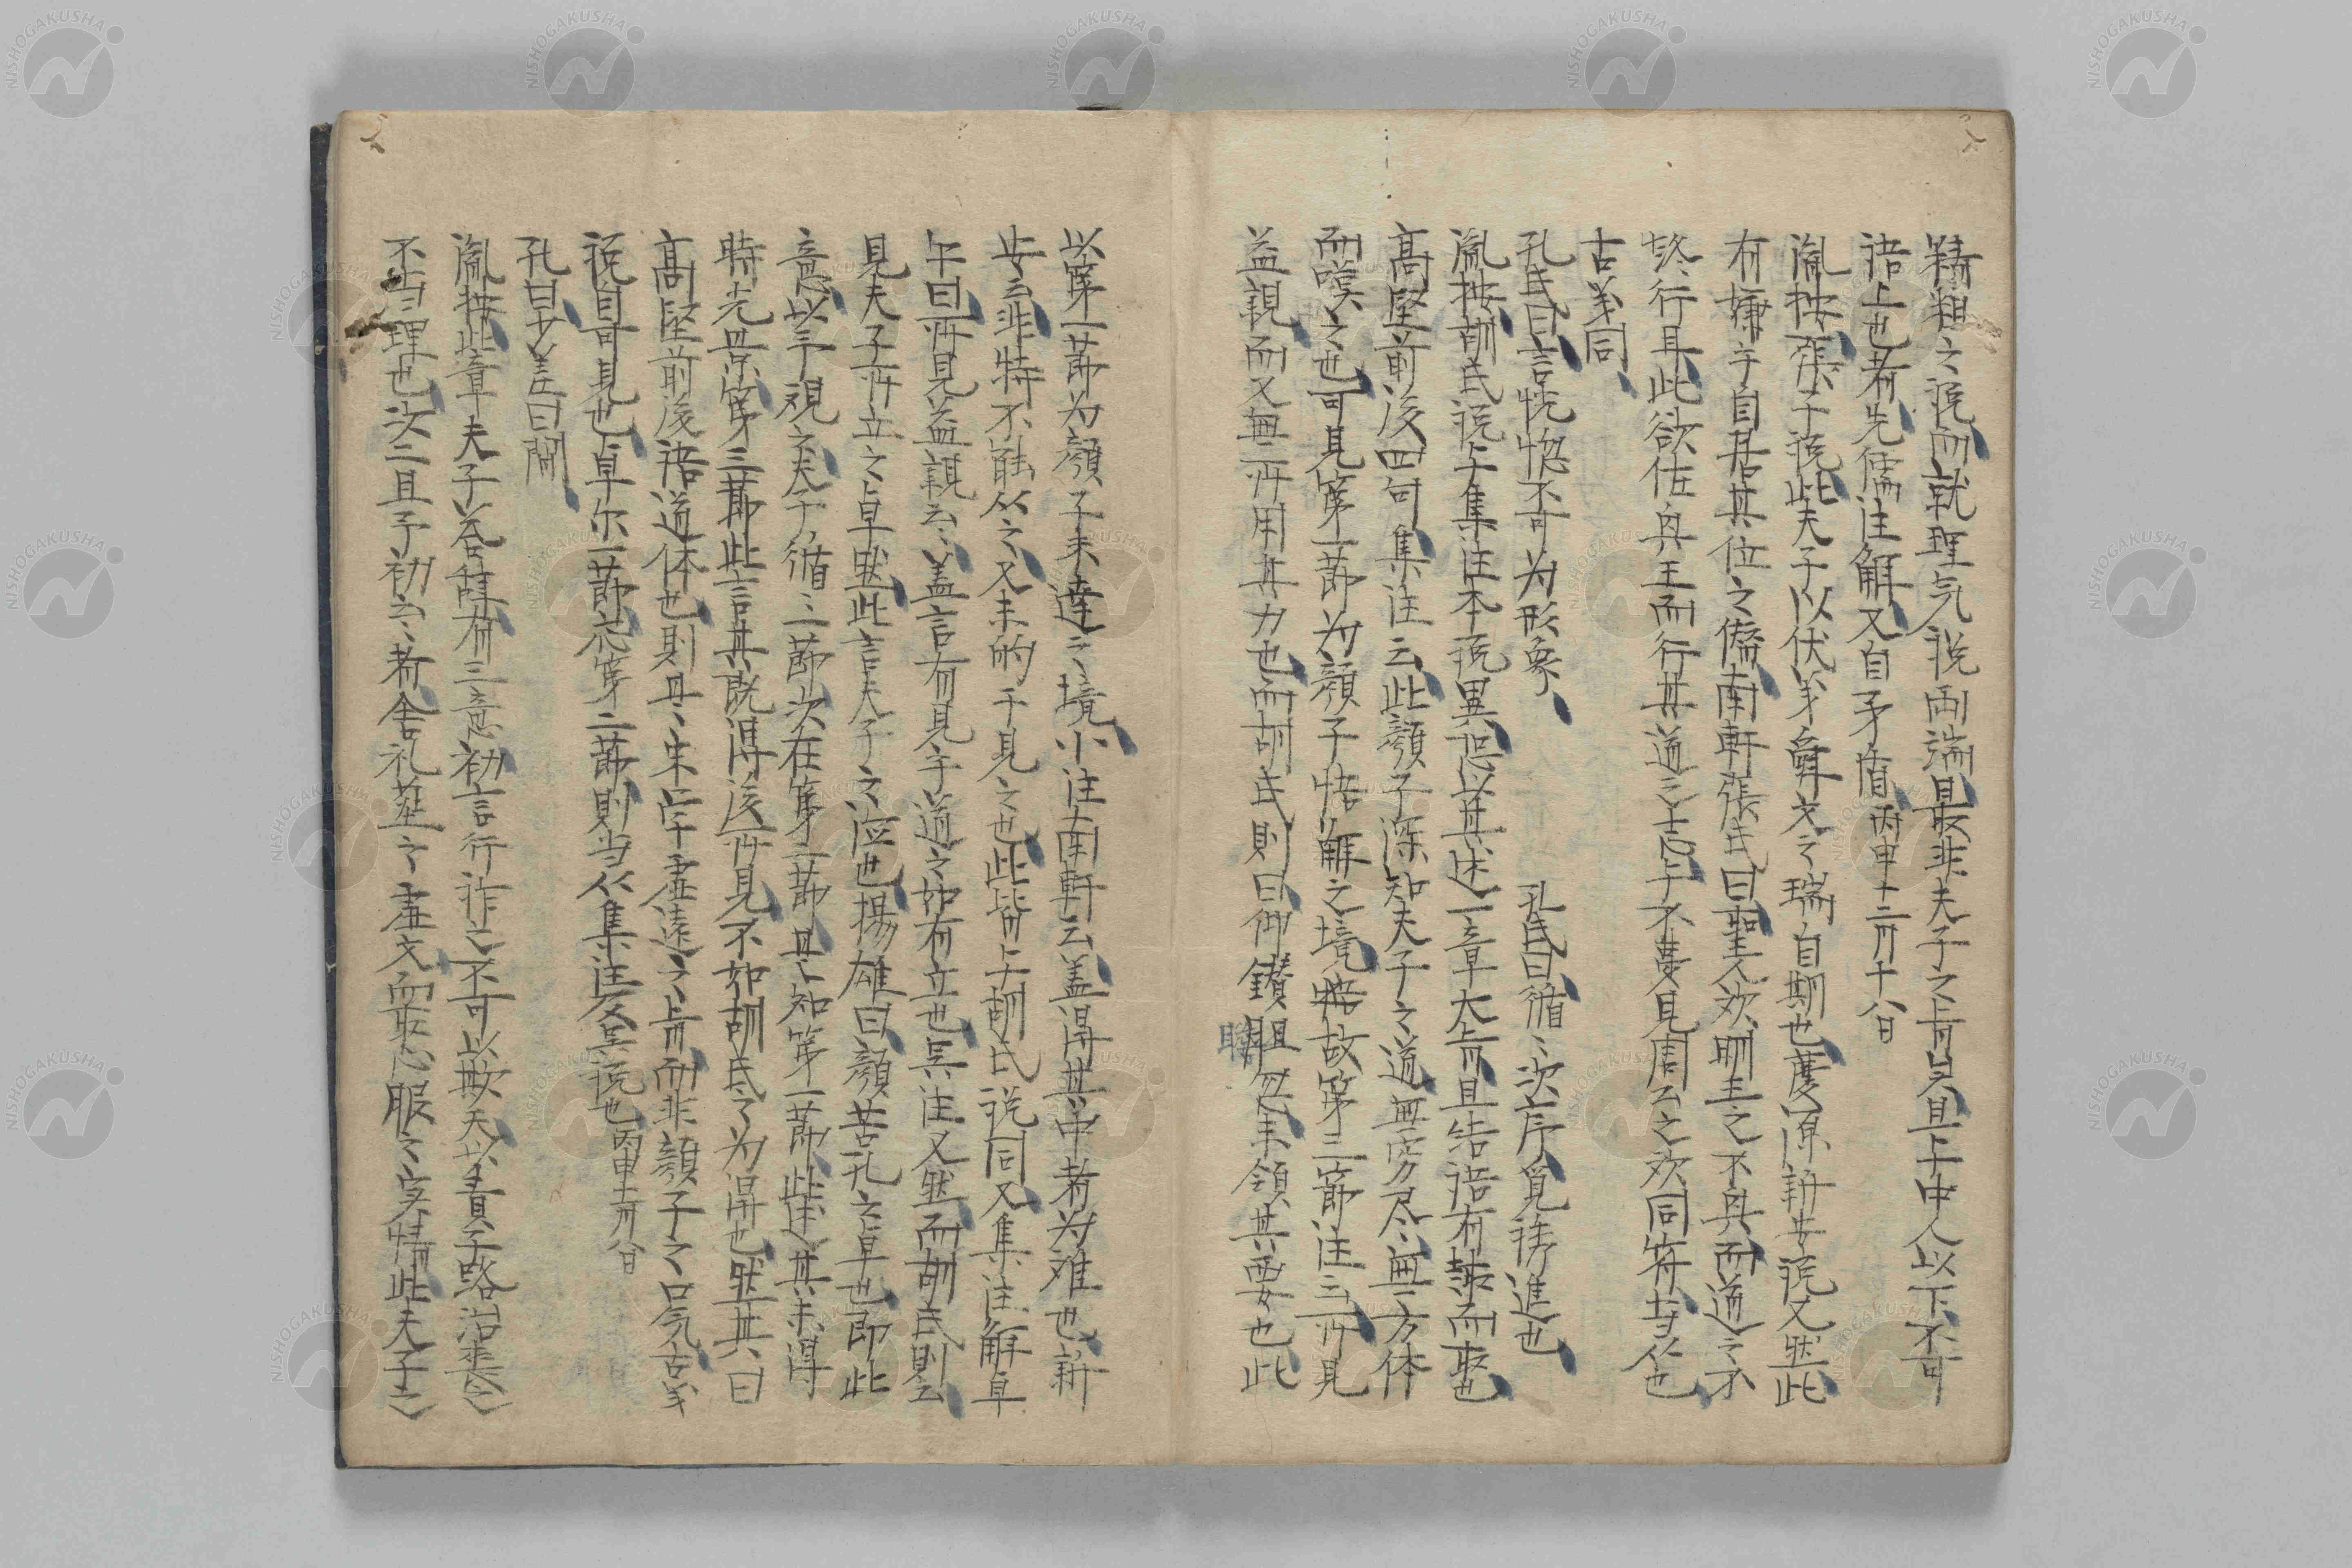 精粗之説而就理気説両端最非夫子之旨矣且与中人以下不可
語上也者先儒注解又自矛盾丙申十二月十八日
胤按張子説此夫子以伏羲舜文之瑞自期也慶源新安説又然此
有嫌乎自居其位之僭南軒張氏曰聖人歎明王之不興而道之不
終行耳此欲佐興王而行其道之志与不夢見周公之歎同符当从也
古義同
孔氏曰言恍惚不可为形象　孔氏曰循〻次序貌誘進也
胤按胡氏説与集注本説異但以其述一章大旨而且告語有棐而取也
高堅前後四句集注云此顔子深知夫子之道無窮尽無方体
而嘆之也可見第一節为顔子悟解之境〻故第三節注云所見
益親而又無所用其力也而胡氏則曰仰鑽瞻忽未領其要也此
以第一節为顔子未達之境小注南軒云蓋得其中者为难也新
安云非特不能从之又未的于見之也此皆与胡氏説同又集注解卓
尔曰所見益親云〻蓋言有見乎道之如有立也呉注又然而胡氏則云
見夫子所立之卓然此言夫子之泣也揚雄曰顔苦孔之卓也即此
意以予視之夫子循〻二節次在第二節且知第一節此述其未得
時光景第三節此言其既得後所見不如胡氏之为得也然其曰
高堅前後語道体也則〻宋学虚遠之旨而非顔子之口気古義
説自可見也卓尔一節応第二節則当从集注及呉説也丙申十二月廿八日
孔曰少差曰間
胤按此章夫子答辞有三意初言行詐之不可以欺天以責子路治喪之
不当理也次二且予初云〻者舍礼葬之虚文而取心服之実情此夫子之